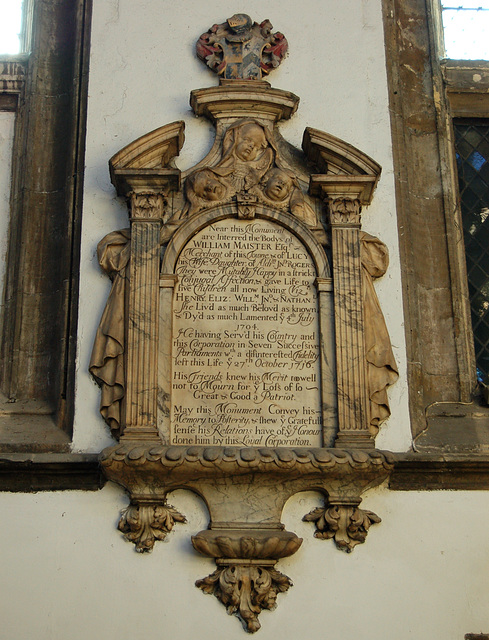 Near this Monument
are Interred the Bodys of
WILLIAM MAISTER Esqr
Merchant of this Towne & of LUCY
his Wife Daughter of Aldn Jno ROGERS
They were Mutualy Happy in a strickt
Conjugal Affection, & gave Life to
five Children all now Living (viz)
HENRY, ELIZ: WILLm JNo & NATHAN:
She Liv'd as much Belov'd as known
& Dy'd as much Lamented ye 4th July
1704.
He having Serv'd his Country and
this Corporation in Seven Successive
Parliaments wth a disinterested fidelity
left this Life ye 27th October 1716.
His friends knew his Merit to well
not to Mourn for ye Loss of so
Great & Good a Patriot.
May this Monument Convey his
Memory to Posterity, & shew ye Gratefull
sense his Relations have of ye Honour
done him by this Loyal Corporation.